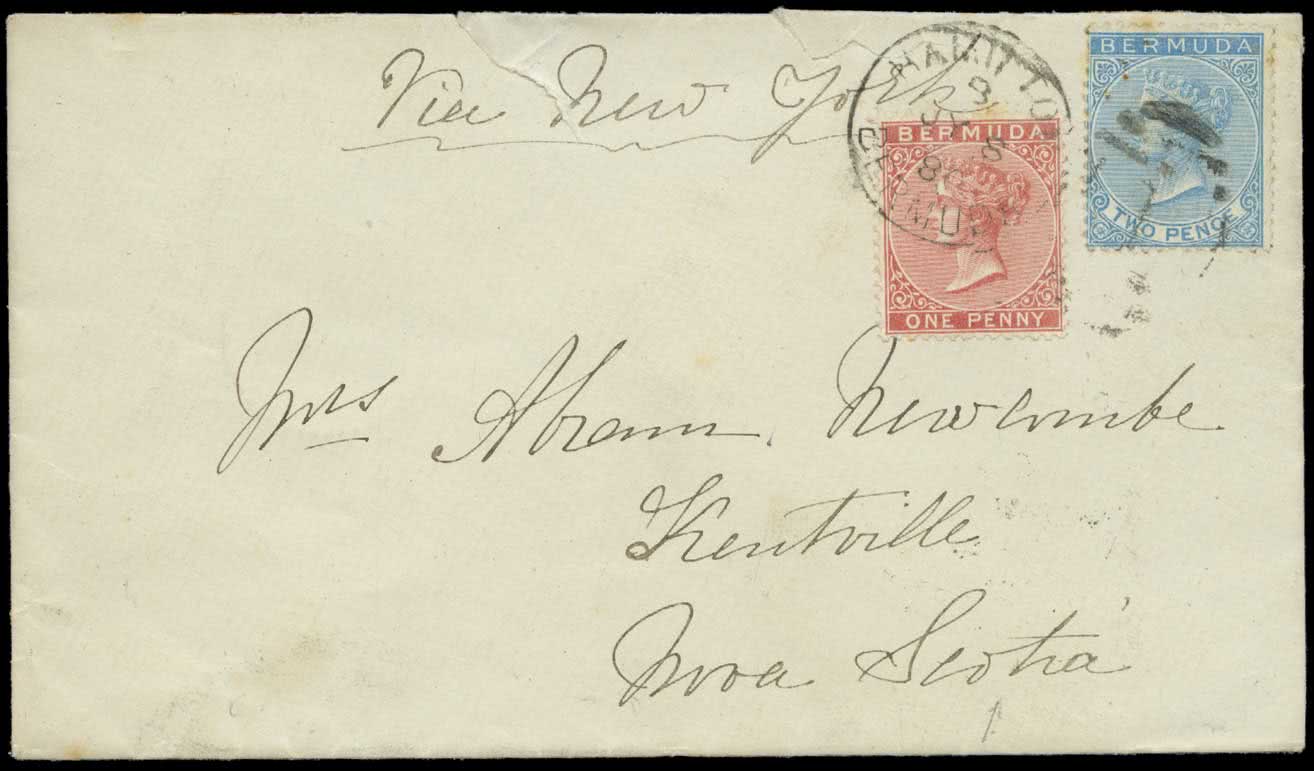 Via New York
HAMILTON
8
JY 8
BERMUDA
BERMUDA
ONE PENNY
BERMUDA
TWO PENCE
Mrs Abram Newcombe
Kentville
Nova Scotia